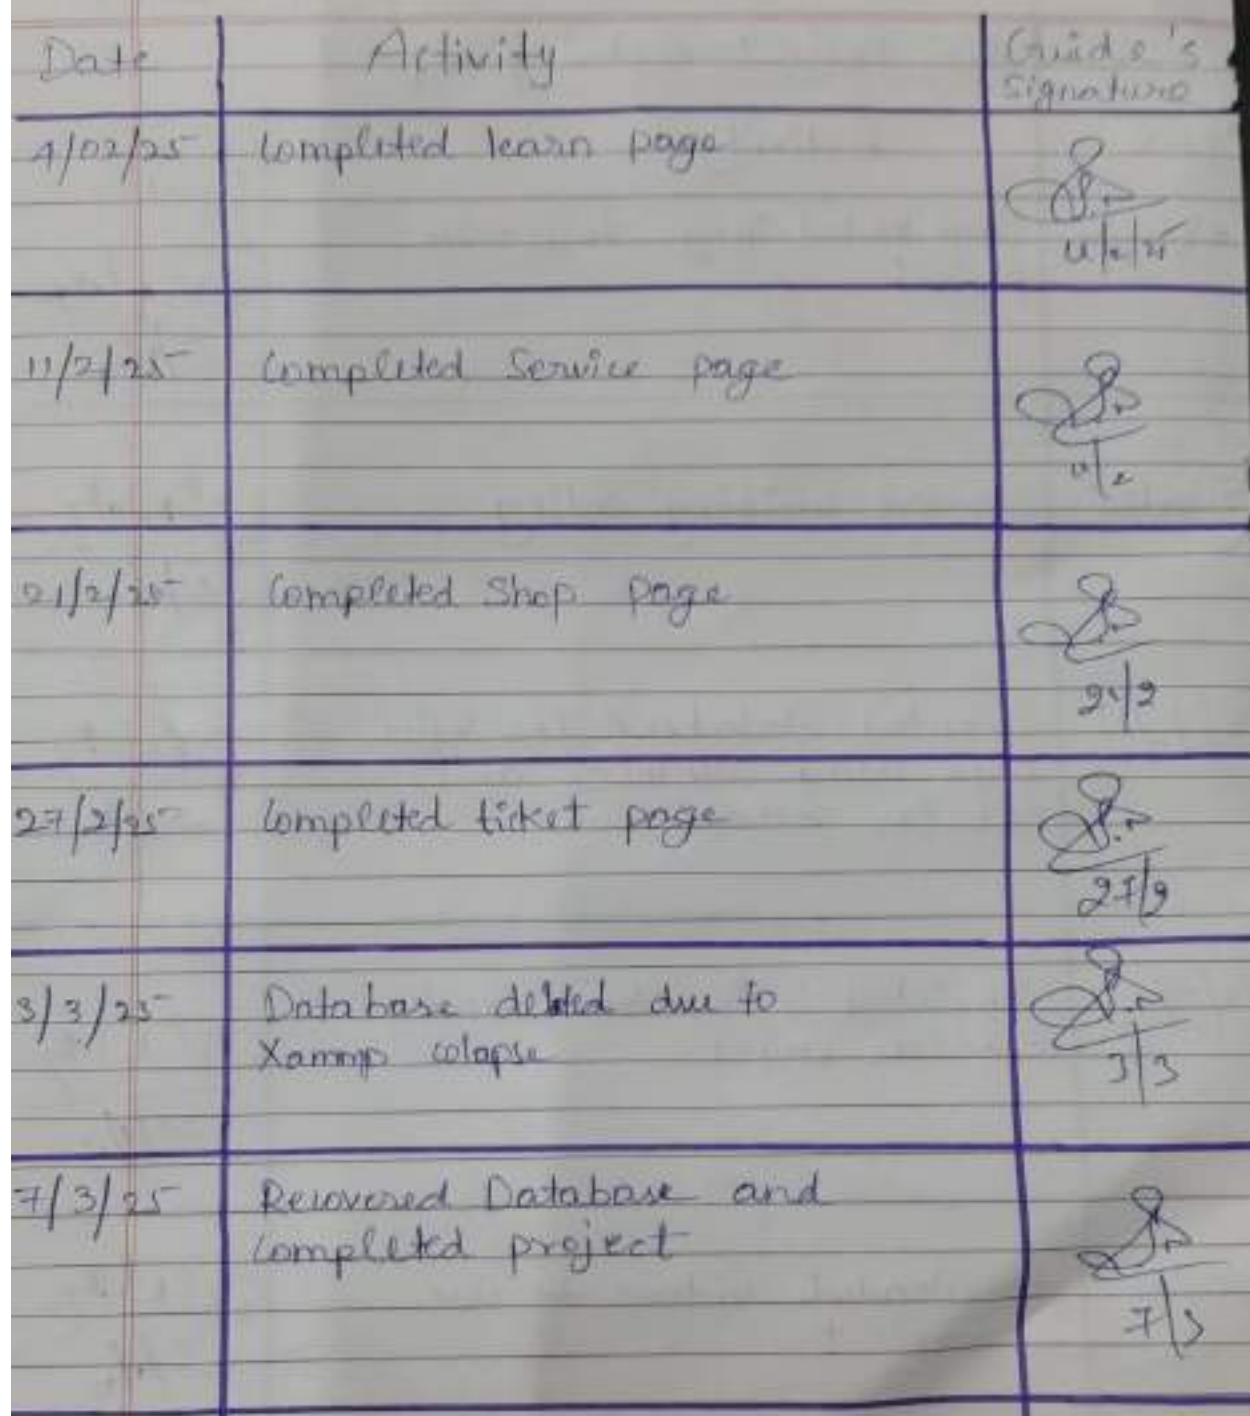 Date Activity Guide's
Signature
4/02/25 Completed learn page
4/2/25
11/2/25 Completed Service page
11/2
21/2/25 Completed Shop page
21/2
27/2/25 Completed ticket page
27/2
3/3/25 Database deleted due to
Xammp colapse
3/3
7/3/25 Recovered Database and
completed project
7/3